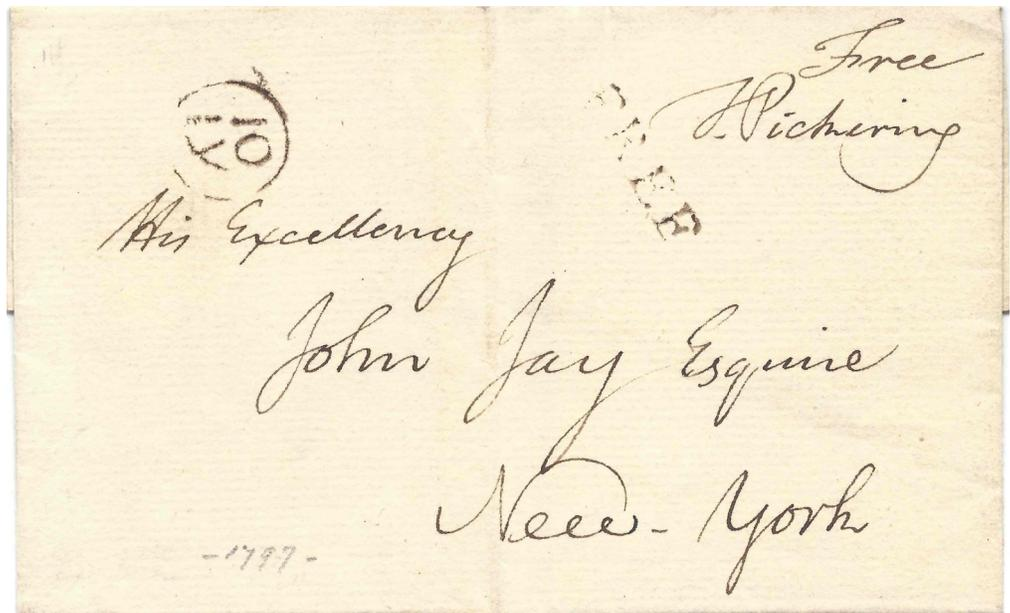 Free
T. Pickering
FREE
10
IY
His Excellency
John Jay Esquire
New-York
-1797-